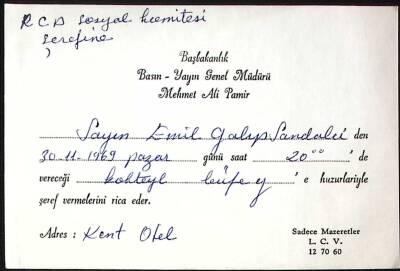 R C D sosyal komitesi
şerefine
Başbakanlık
Basın - Yayın Genel Müdürü
Mehmet Ali Pamir
Sayın Emil Galip Sandalcı den
30-11-1969 pazar günü saat 20°° ' de
vereceği kokteyl büfe y ' e huzurlariyle
şeref vermelerini rica eder.
Adres : Kent Otel
Sadece Mazeretler
L. C. V.
12 70 60